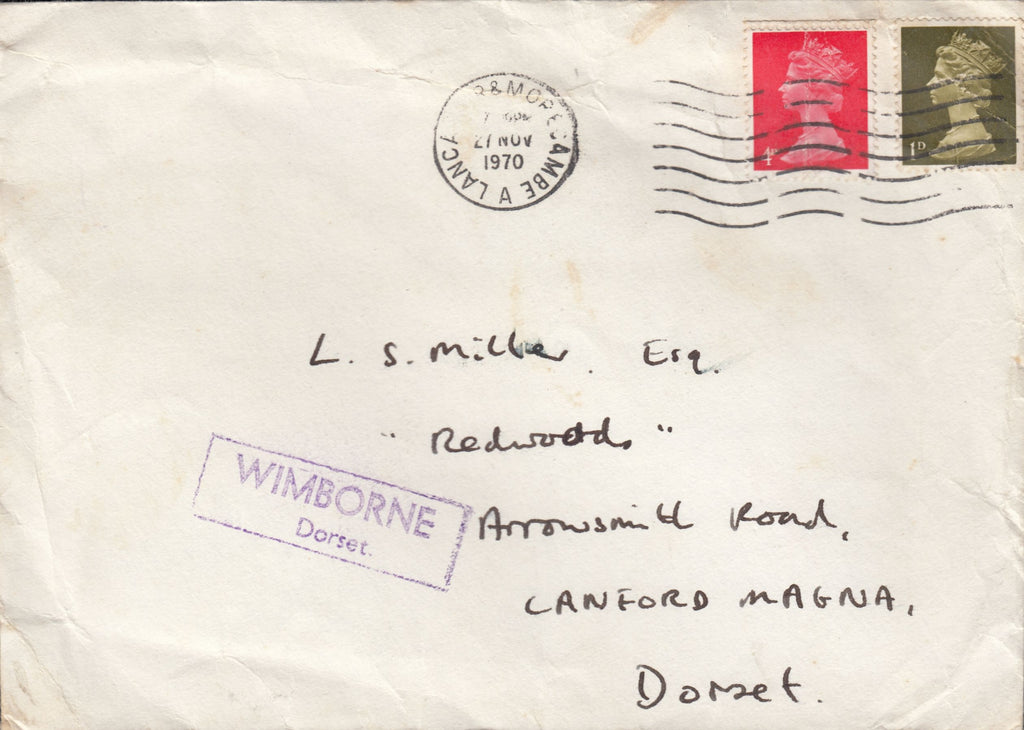 R&MORECAMBE A LANC
27 NOV
1970
4D
1D
L. S. Miller. Esq.
"Redwoods"
WIMBORNE
Dorset.
Arrowsmith Road,
CANFORD MAGNA,
Dorset.